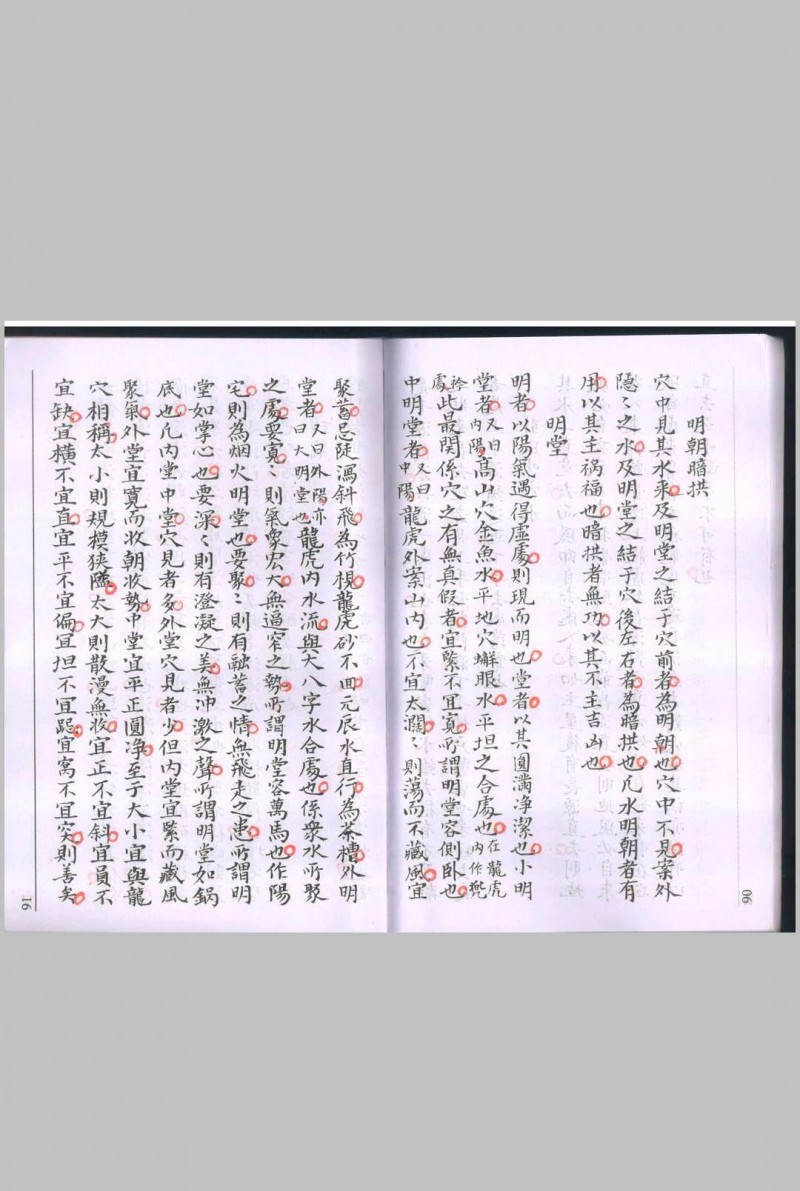 明朝暗拱
穴中見其水来及明堂之結于穴前者為明朝也穴中不見案外
隱〻之水及明堂之結于穴後左右者為暗拱也凢水明朝者有
用以其主禍福也暗拱者無功以其不主吉凶也
明堂
明者以陽氣遇得虛處則現而明也堂者以其圓满净潔也小明
堂者又曰内陽高山穴金魚水平地穴蠏眼水平坦之合處也在龍虎内作兜
衿處此最関係穴之有無真假者宜緊不冝寬所謂明堂容側卧也
中明堂者又曰中陽龍虎外案山内也不宜太濶〻則荡而不藏風宜
聚蓄忌陡瀉斜飛為竹梘龍虎砂不囬元辰水直行為茶槽外明
堂者又曰外陽亦曰大明堂也龍虎内水流與大八字水合處也係衆水所聚
之處要寬〻則氣象宏大無逼窄之勢所謂明堂容萬馬也作陽
宅則為烟火明堂也要聚〻則有融蓄之情無飛走之患所謂明
堂如掌心也要深〻則有澄凝之美無冲激之聲所謂明堂如鍋
底也凢内堂中堂穴見者多外堂穴見者少但内堂宜緊而藏風
聚氣外堂宜寬而收朝收勢中堂宜平正圓净至于大小宜與龍
穴相稱太小則規模狭隘太大則散漫無收宜正不宜斜宜員不
宜缺宜橫不宜直宜平不宜偏冝坦不宜跕宜窩不宜突則善矣
90
91